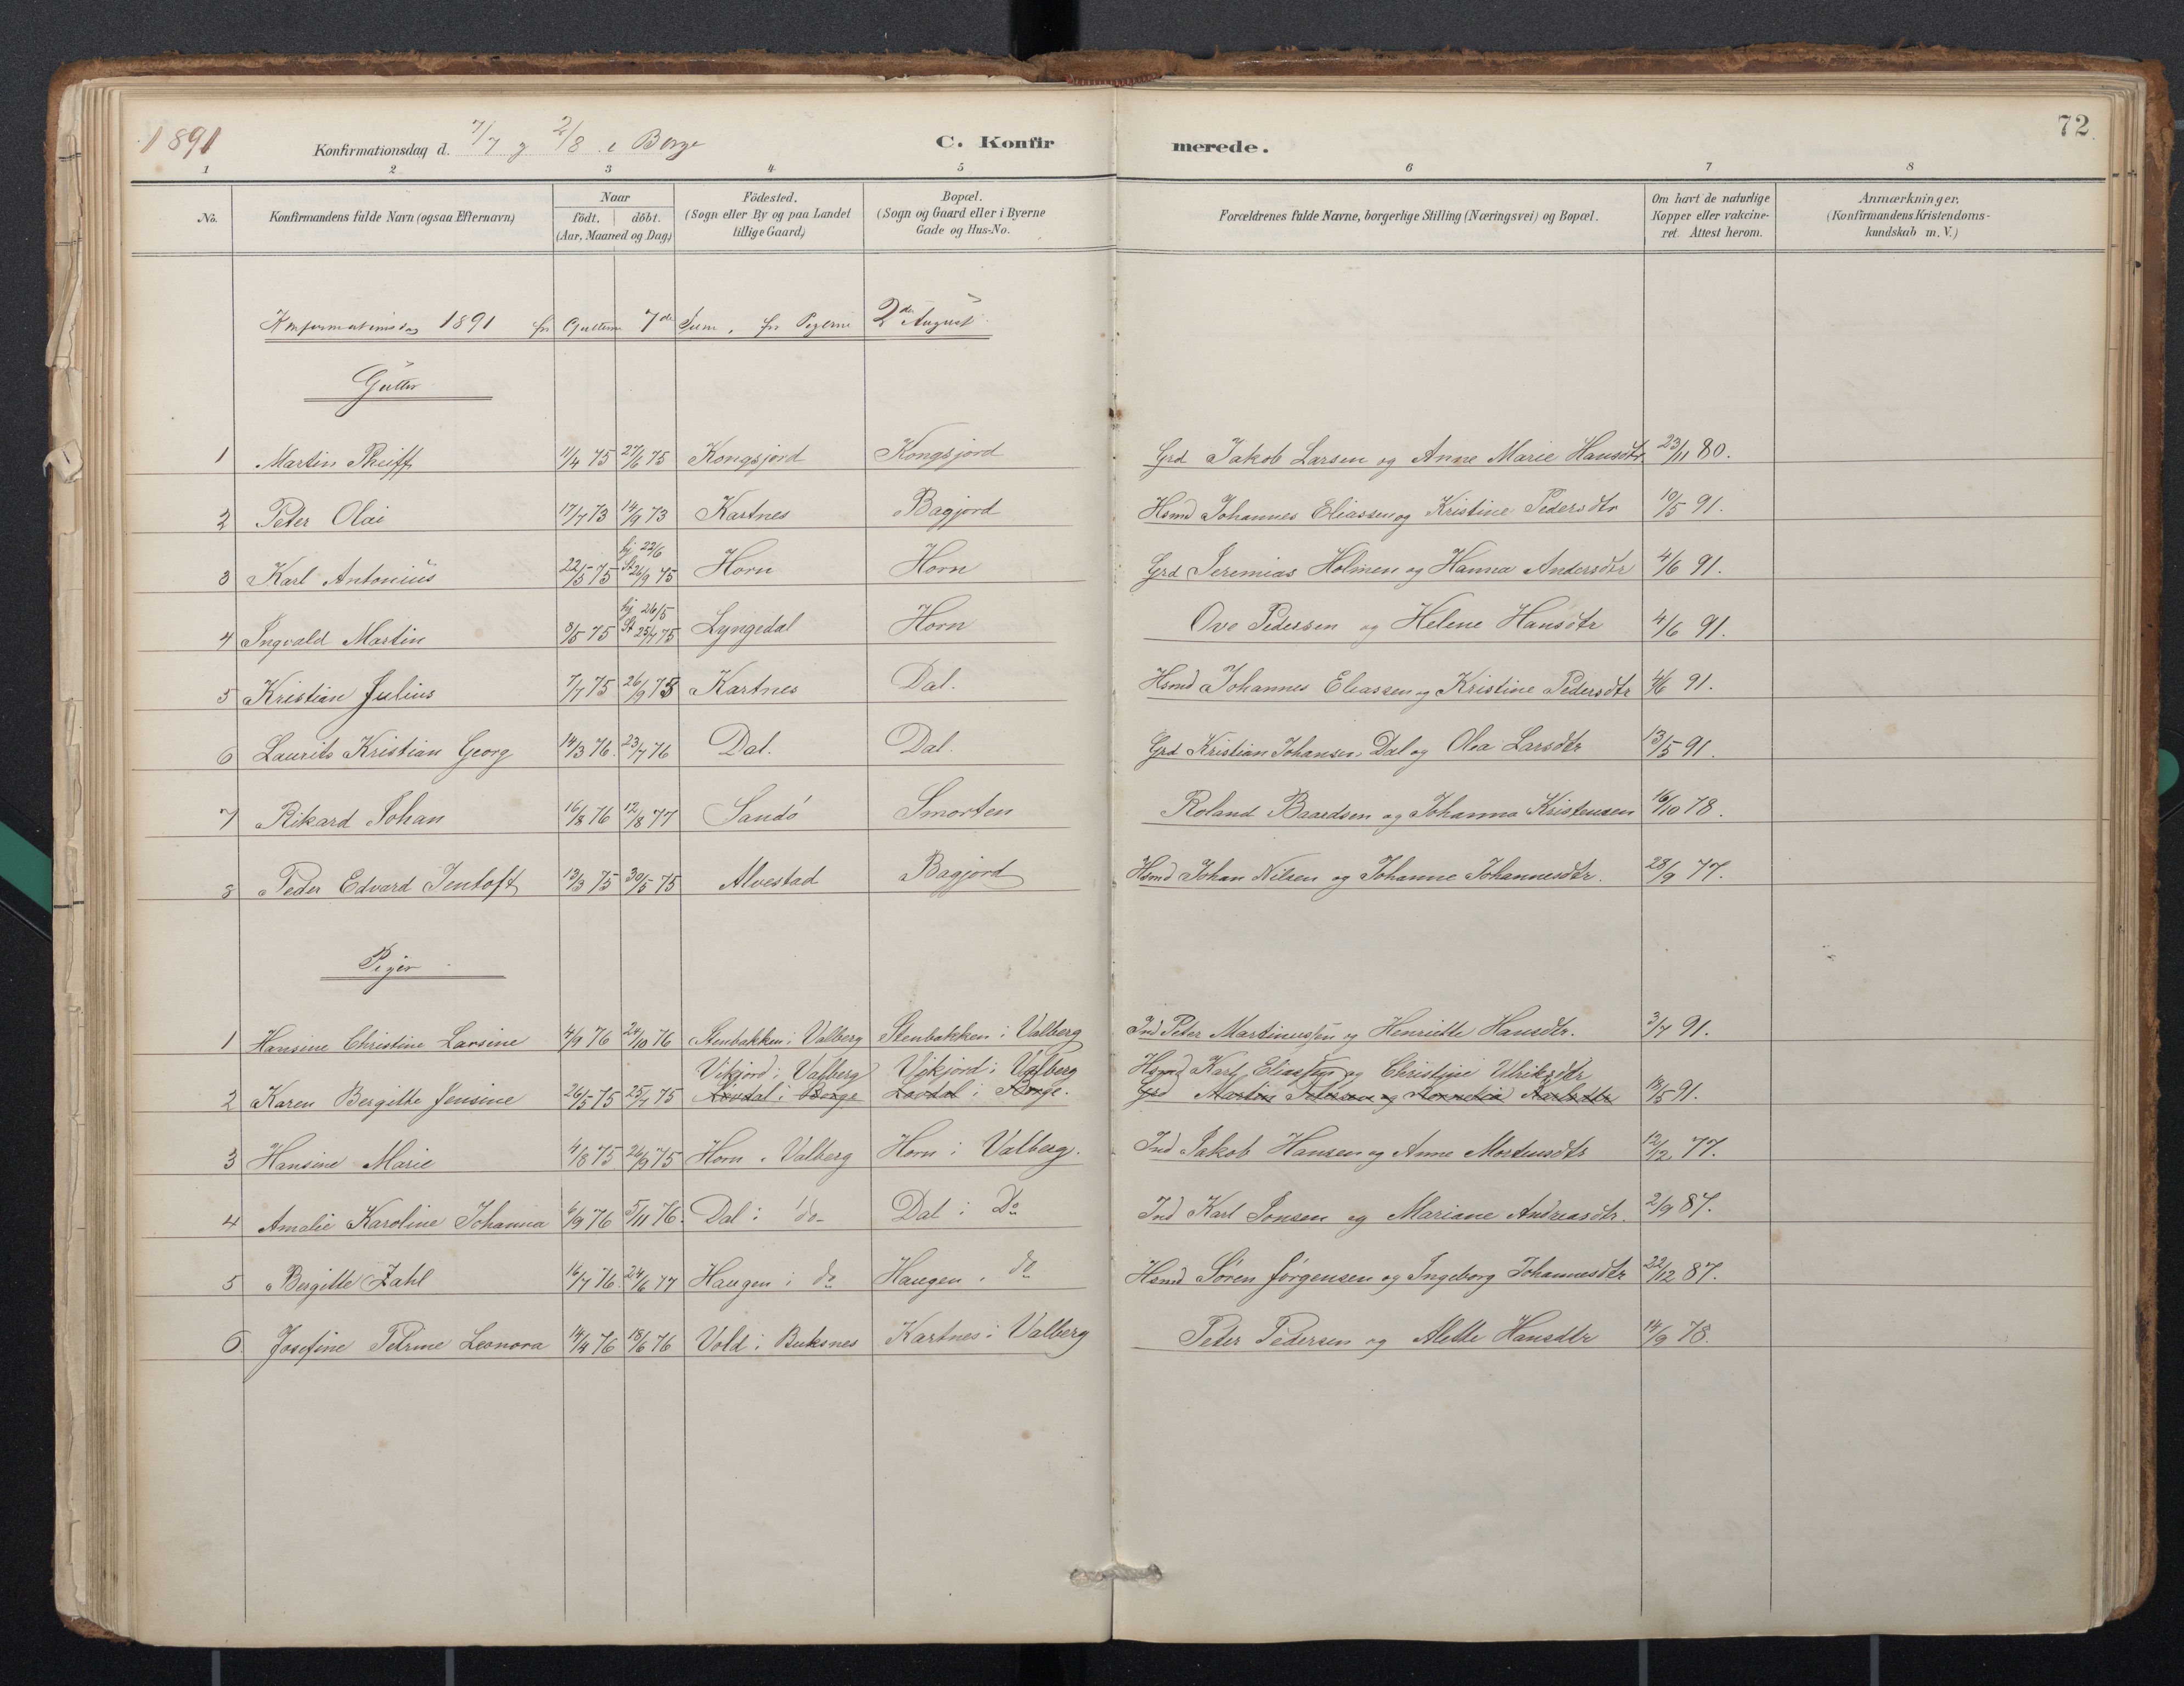 72.
1891 Konfirmationsdag d. 7/7 og 2/8 i Borge C. Konfirmerede.
1 2 3 4 5 6 7 8
No. Konfirmandens fulde Navn (ogsaa Efternavn) Naar födt. döbt. (Aar, Maaned og Dag) Födested. (Sogn eller By og paa Landet tillige Gaard) Bopæl. (Sogn og Gaard eller i Byerne Gade og Hus-No. Forældrenes fulde Navne, borgerlige Stilling (Næringsvei) og Bopæl. Om havt de naturlige Kopper eller vakcineret. Attest herom. Anmærkninger. (Konfirmandens Kristendomskundskab m. V.)
Konfirmationsdag 1891 for Gutterne 7de Juni, for Pigerne 2den August
Gutter
1 Martin 11/4 75 27/6 75 Kongsjord Kongsjord Grd Jakob Larsen og Anne Marie Hansdtr 23/11 80.
2 Peter Olai 17/7 73 14/9 73 Kartnes Bagjord Hsmd Johannes Eliassen og Kristine Pedersdtr 10/5 91.
3 Karl Antonius 22/5 75 hj 22/6 St 26/9 75 Horn Horn Grd Jeremias Holmen og Hanna Andersdtr 4/6 91.
4 Ingvald Martin 8/5 75 hj 26/5 St 25/7 75 Lyngedal Horn Ove Pedersen og Helene Hansdtr 4/6 91.
5 Kristian Julius 7/7 75 26/9 75 Kartnes Dal. Hsmd Johannes Eliassen og Kristine Pedersdtr 4/6 91.
6 Laurits Kristian Georg 14/3 76. 23/7 76 Dal. Dal. Grd Kristian Johansen Dal og Olea Larsdtr 13/5 91.
7 Rikard Johan 16/8 76 12/8 77 Sandö Smorten Roland Baardsen og Johanna Kristensen 16/10 78.
8 Peder Edvard Jentoft 13/3 75 30/5 75 Alvestad Bagjord Hsmd Johan Nilsen og Johanne Johannesdtr. 28/9 77.
Piger
1 Hansine Christine Larsine 4/9 76 24/10 76 Stenbakken i Valberg Stenbakken i Valberg Ind Peter Martinussen og Henriette Hansdtr. 3/7 91.
Vikjord i Valberg Vikjord i Valberg Hsmd Karl Eliassen og Christine Ulriksdtr
2 Karen Bergitte Jensine 26/5 75 25/7 75 Lovdal i Borge Lovdal i Borge. Grd Martin Petersen og Karlsdtr 18/5 91.
3 Hansine Marie 4/8 75 26/9 75 Horn i Valberg Horn i Valberg. Ind Jakob Hansen og Anne Mortensdtr 12/12 77.
4 Amalie Karoline Johanna 6/9 76 5/11 76. Dal i do Dal i Do Ind Karl Jonsen og Mariane Andreasdtr. 2/9 87.
5 Bergitte Zahl 16/7 76. 24/6 77 Haugen i do Haugen i do Hsmd Sören Jørgensen og Ingeborg Johannesdtr 22/12 87.
6. Josefine Petrine Leonora 14/4 76 18/6 76 Vold i Buksnes Kartnes i Valberg Peter Pedersen og Alette Hansdtr 14/9 78.